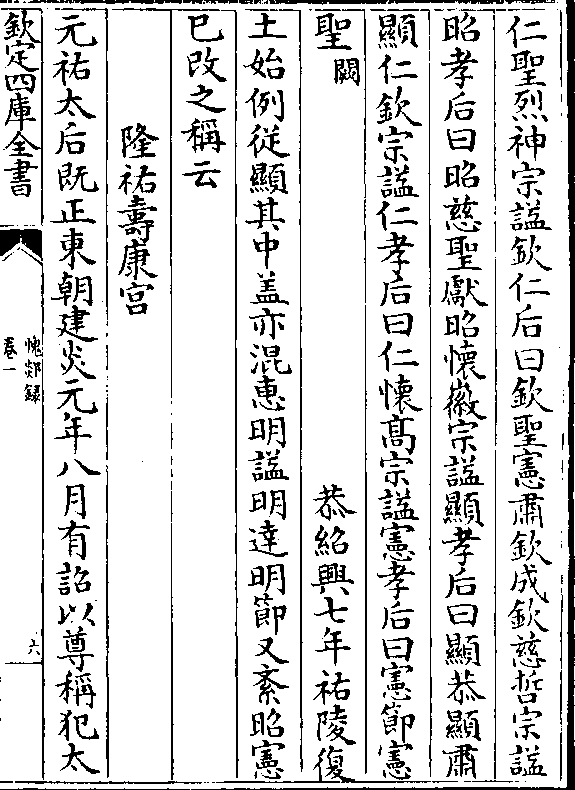 仁聖烈神宗諡欽仁后曰欽聖憲肅欽成欽慈哲宗諡
昭孝后曰昭慈聖獻昭懷徽宗諡顯孝后曰顯恭顯肅
顯仁欽宗諡仁孝后曰仁懷高宗諡憲孝后曰憲節憲
聖闕　　　　　　恭紹興七年祐陵復
土始例從顯其中盖亦混惠明諡明達明節又紊昭憲
已改之稱云
隆祐壽康宮
元祐太后既正東朝建炎元年八月有詔以尊稱犯太
欽定四庫全書
愧郯録
卷一
六